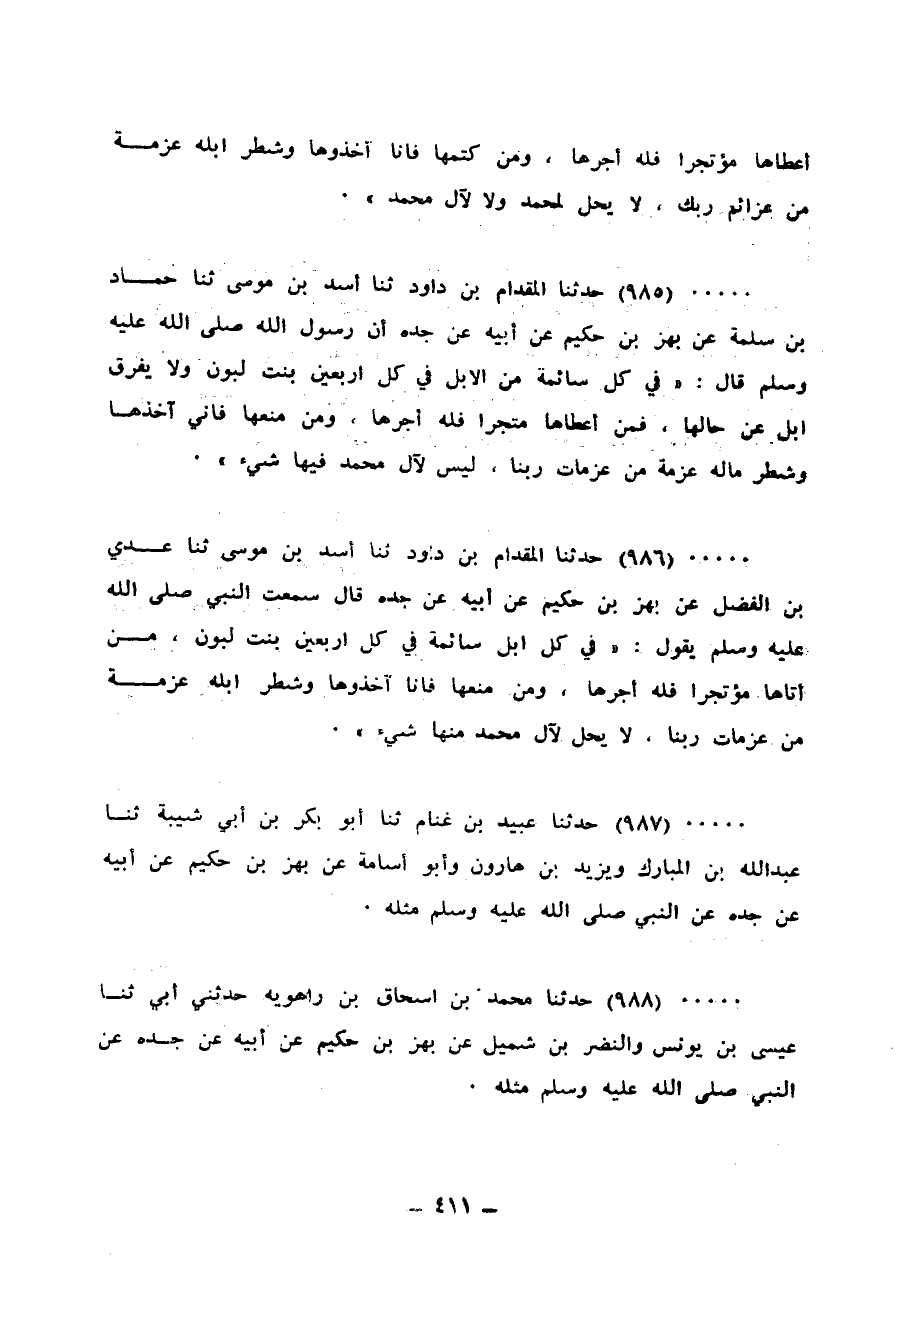 أعطاها مؤتجرا فله أجرها ، ومن كتمها فانا آخذوها وشطر ابله عزمـــة
من عزائم ربك ، لا يحل لمحمد ولا لآل محمد » ٠
٠٠٠٠٠ (٩٨٥) حدثنا المقدام بن داود ثنا أسد بن موسى ثنا حمـــاد
بن سلمة عن بهز بن حكيم عن أبيه عن جده أن رسول الله صلى الله عليه
وسلم قال : « في كل سائمة من الابل في كل اربعين بنت لبون ولا يفرق
ابل عن حالها ، فمن أعطاها متجرا فله أجرها ، ومن منعها فاني آخذهــا
وشطر ماله عزمة من عزمات ربنا ، ليس لآل محمد فيها شيء » ٠
٠٠٠٠٠ (٩٨٦) حدثنا المقدام بن داود ثنا أسد بن موسى ثنا عـــدي
بن الفضل عن بهز بن حكيم عن أبيه عن جده قال سمعت النبي صلى الله
عليه وسلم يقول : « في كل ابل سائمة في كل اربعين بنت لبون ، مـــن
أتاها مؤتجرا فله أجرها ، ومن منعها فانا آخذوها وشطر ابله عزمـــة
من عزمات ربنا ، لا يحل لآل محمد منها شيء » ٠
٠٠٠٠٠ (٩٨٧) حدثنا عبيد بن غنام ثنا أبو بكر بن أبي شيبة ثنــا
عبدالله بن المبارك ويزيد بن هارون وأبو أسامة عن بهز بن حكيم عن أبيه
عن جده عن النبي صلى الله عليه وسلم مثله ٠
٠٠٠٠٠ (٩٨٨) حدثنا محمد بن اسحاق بن راهويه حدثني أبي ثنــا
عيسى بن يونس والنضر بن شميل عن بهز بن حكيم عن أبيه عن جــده عن
النبي صلى الله عليه وسلم مثله ٠
ــ ٤١١ ــ